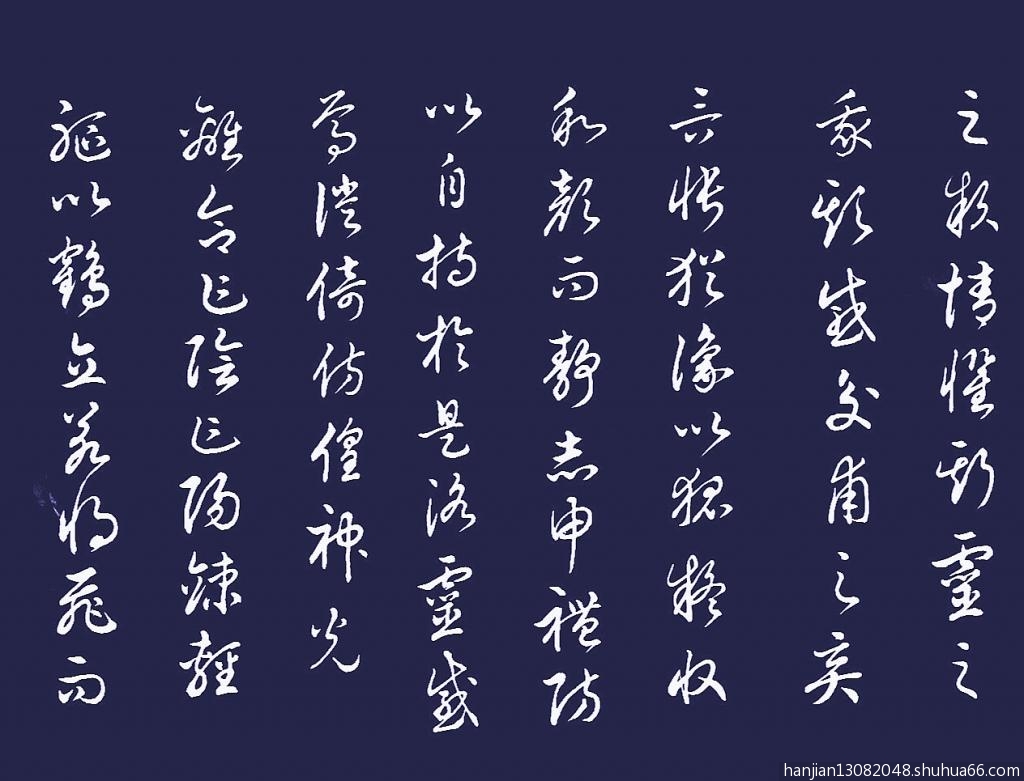 之款情懼斯靈之
我欺感交甫之棄
言悵猶豫以狐疑收
和顏而靜志申禮防
以自持於是洛靈感
焉徙倚仿偟神光
離合乍陰乍陽竦輕
軀以鶴立若將飛而
hanjian13082048.shuhua66.com